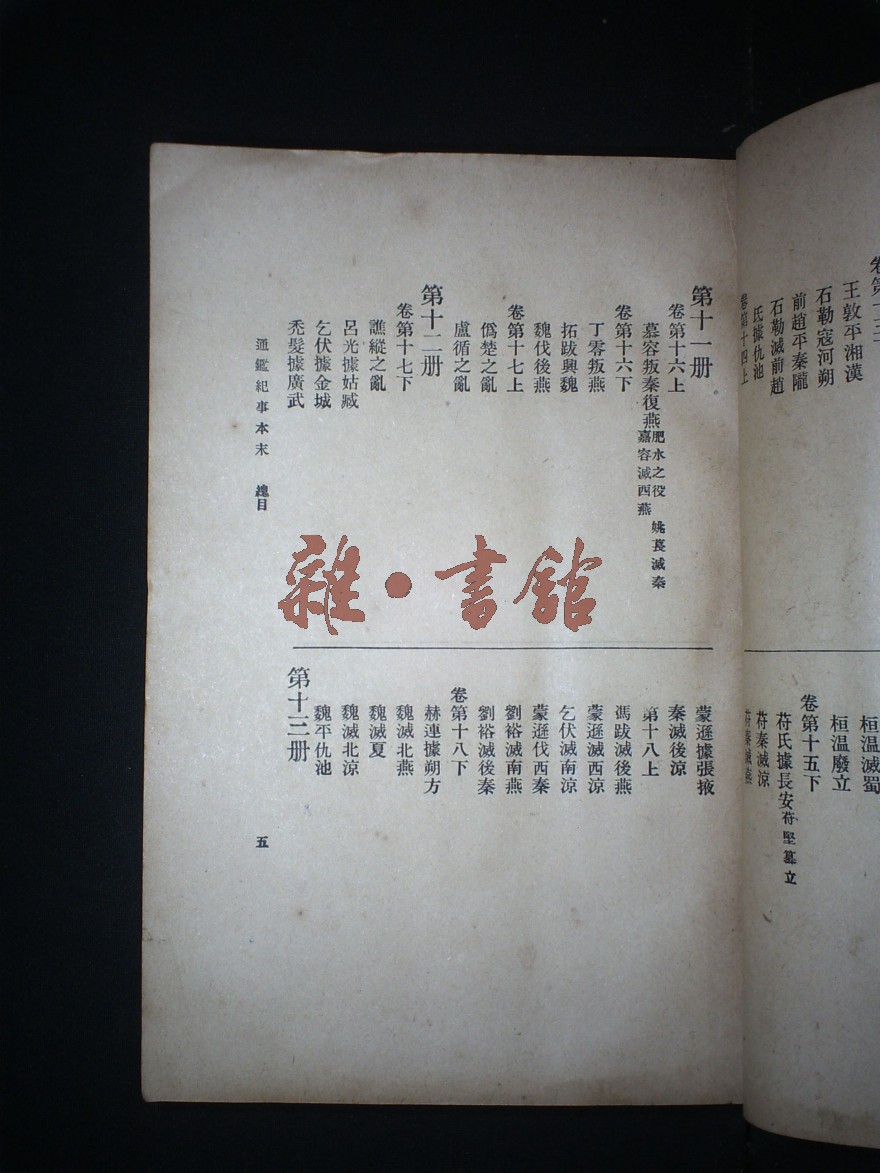 王敦平湘漢
石勒寇河朔
前趙平秦隴
石勒滅前趙
氐據仇池
卷第十四上
桓溫滅蜀
桓溫廢立
卷第十五下
苻氏據長安苻堅篡立
苻秦滅涼
苻秦滅燕
第十一册
卷第十六上
慕容叛秦復燕肥水之役 姚萇滅秦
嘉容滅西燕
卷第十六下
丁零叛燕
拓跋興魏
魏伐後燕
卷第十七上
僞楚之亂
盧循之亂
第十二册
卷第十七下
譙縱之亂
呂光據姑臧
乞伏據金城
禿髮據廣武
蒙遜據張掖
秦滅後涼
第十八上
馮跋滅後燕
蒙遜滅西涼
乞伏滅南涼
蒙遜伐西秦
劉裕滅南燕
劉裕滅後秦
卷第十八下
赫連據朔方
魏滅北燕
魏滅夏
魏滅北涼
魏平仇池
第十三册
通鑑紀事本末 總目
五
雜·書館